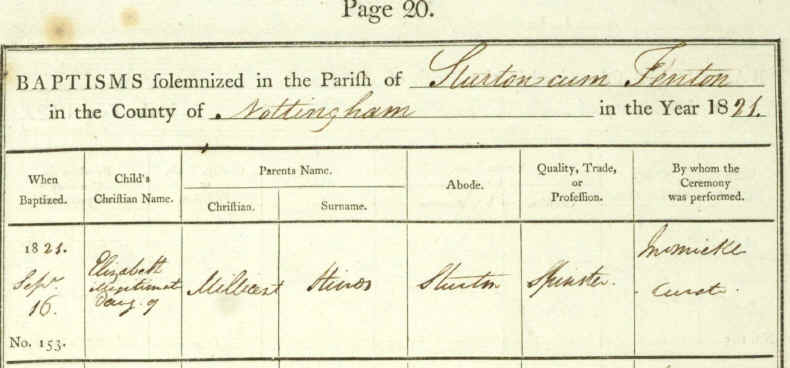 Page 20.
BAPTISMS ſolemnized in the Pariſh of Sturton cum Fenton
in the County of Nottingham in the Year 1821.
When Baptized.
Child's Chriſtian Name.
Parents Name.
Chriſtian.
Surname.
Abode.
Quality, Trade, or Profeſſion.
By whom the Ceremony was performed.
1821.
Sepr.
16.
No. 153.
Elizabeth
Illegitimate
Daug. of
Millicent
Sturton
Spinster.
Curate.